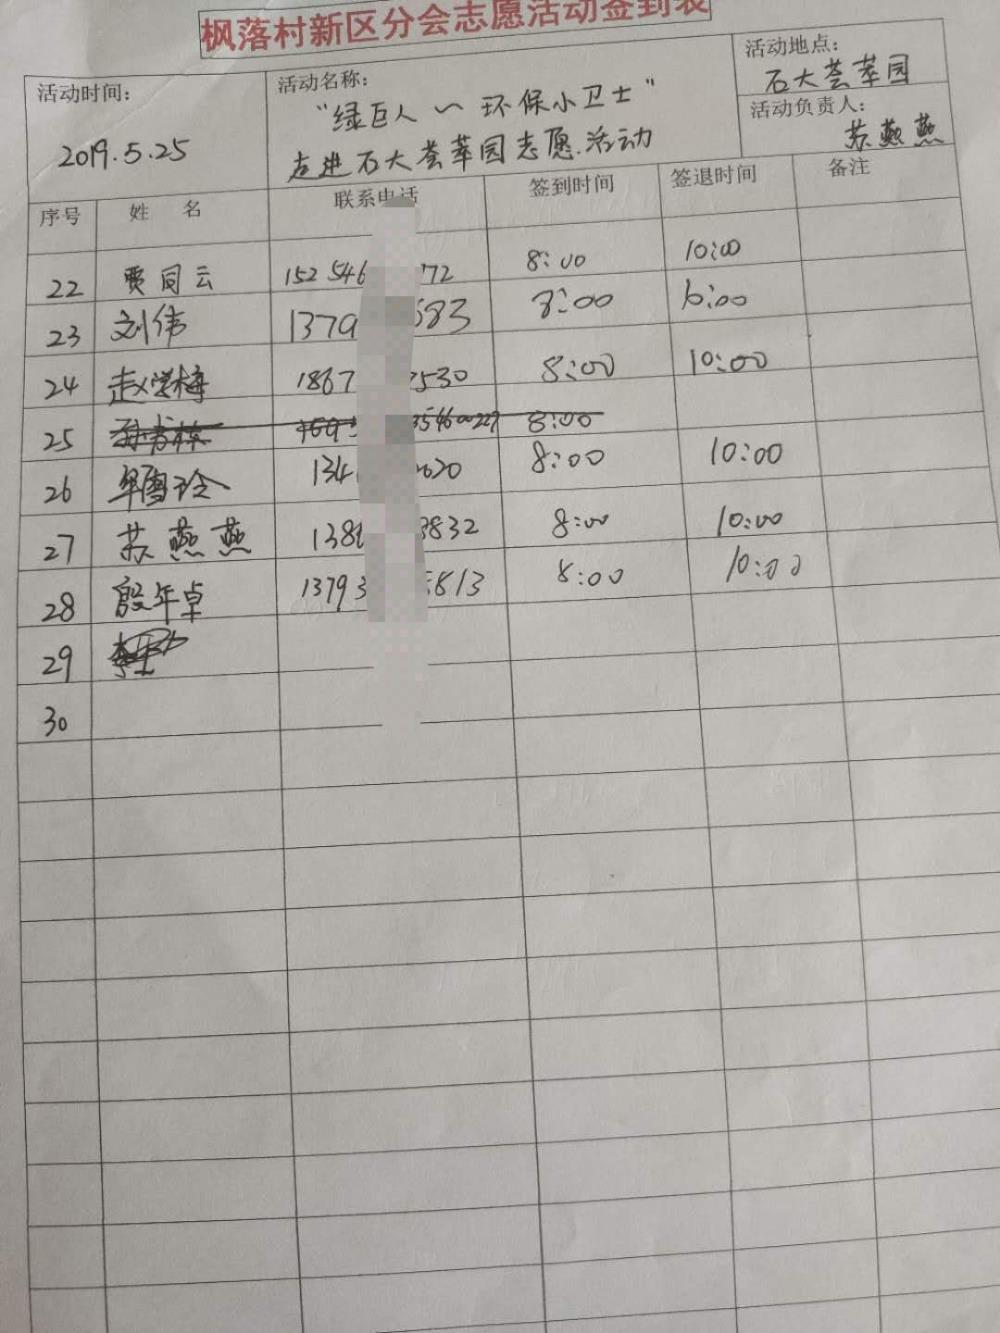 枫落村新区分会志愿活动签到表
活动时间: 2019.5.25
活动名称: "绿巨人 ~ 环保小卫士"
走进石大荟萃园志愿活动
活动地点: 石大荟萃园
活动负责人: 苏燕燕
序号 姓 名 联系电话 签到时间 签退时间 备注
22 贾同云 152 546 772 8:00 10:00
23 刘伟 1379 683 8:00 10:00
24 赵学梅 1867 2530 8:00 10:00
25 8:00
26 雪玲 134 620 8:00 10:00
27 苏燕燕 138 8832 8:00 10:00
28 殷年卓 1379 3 813 8:00 10:00
29
30